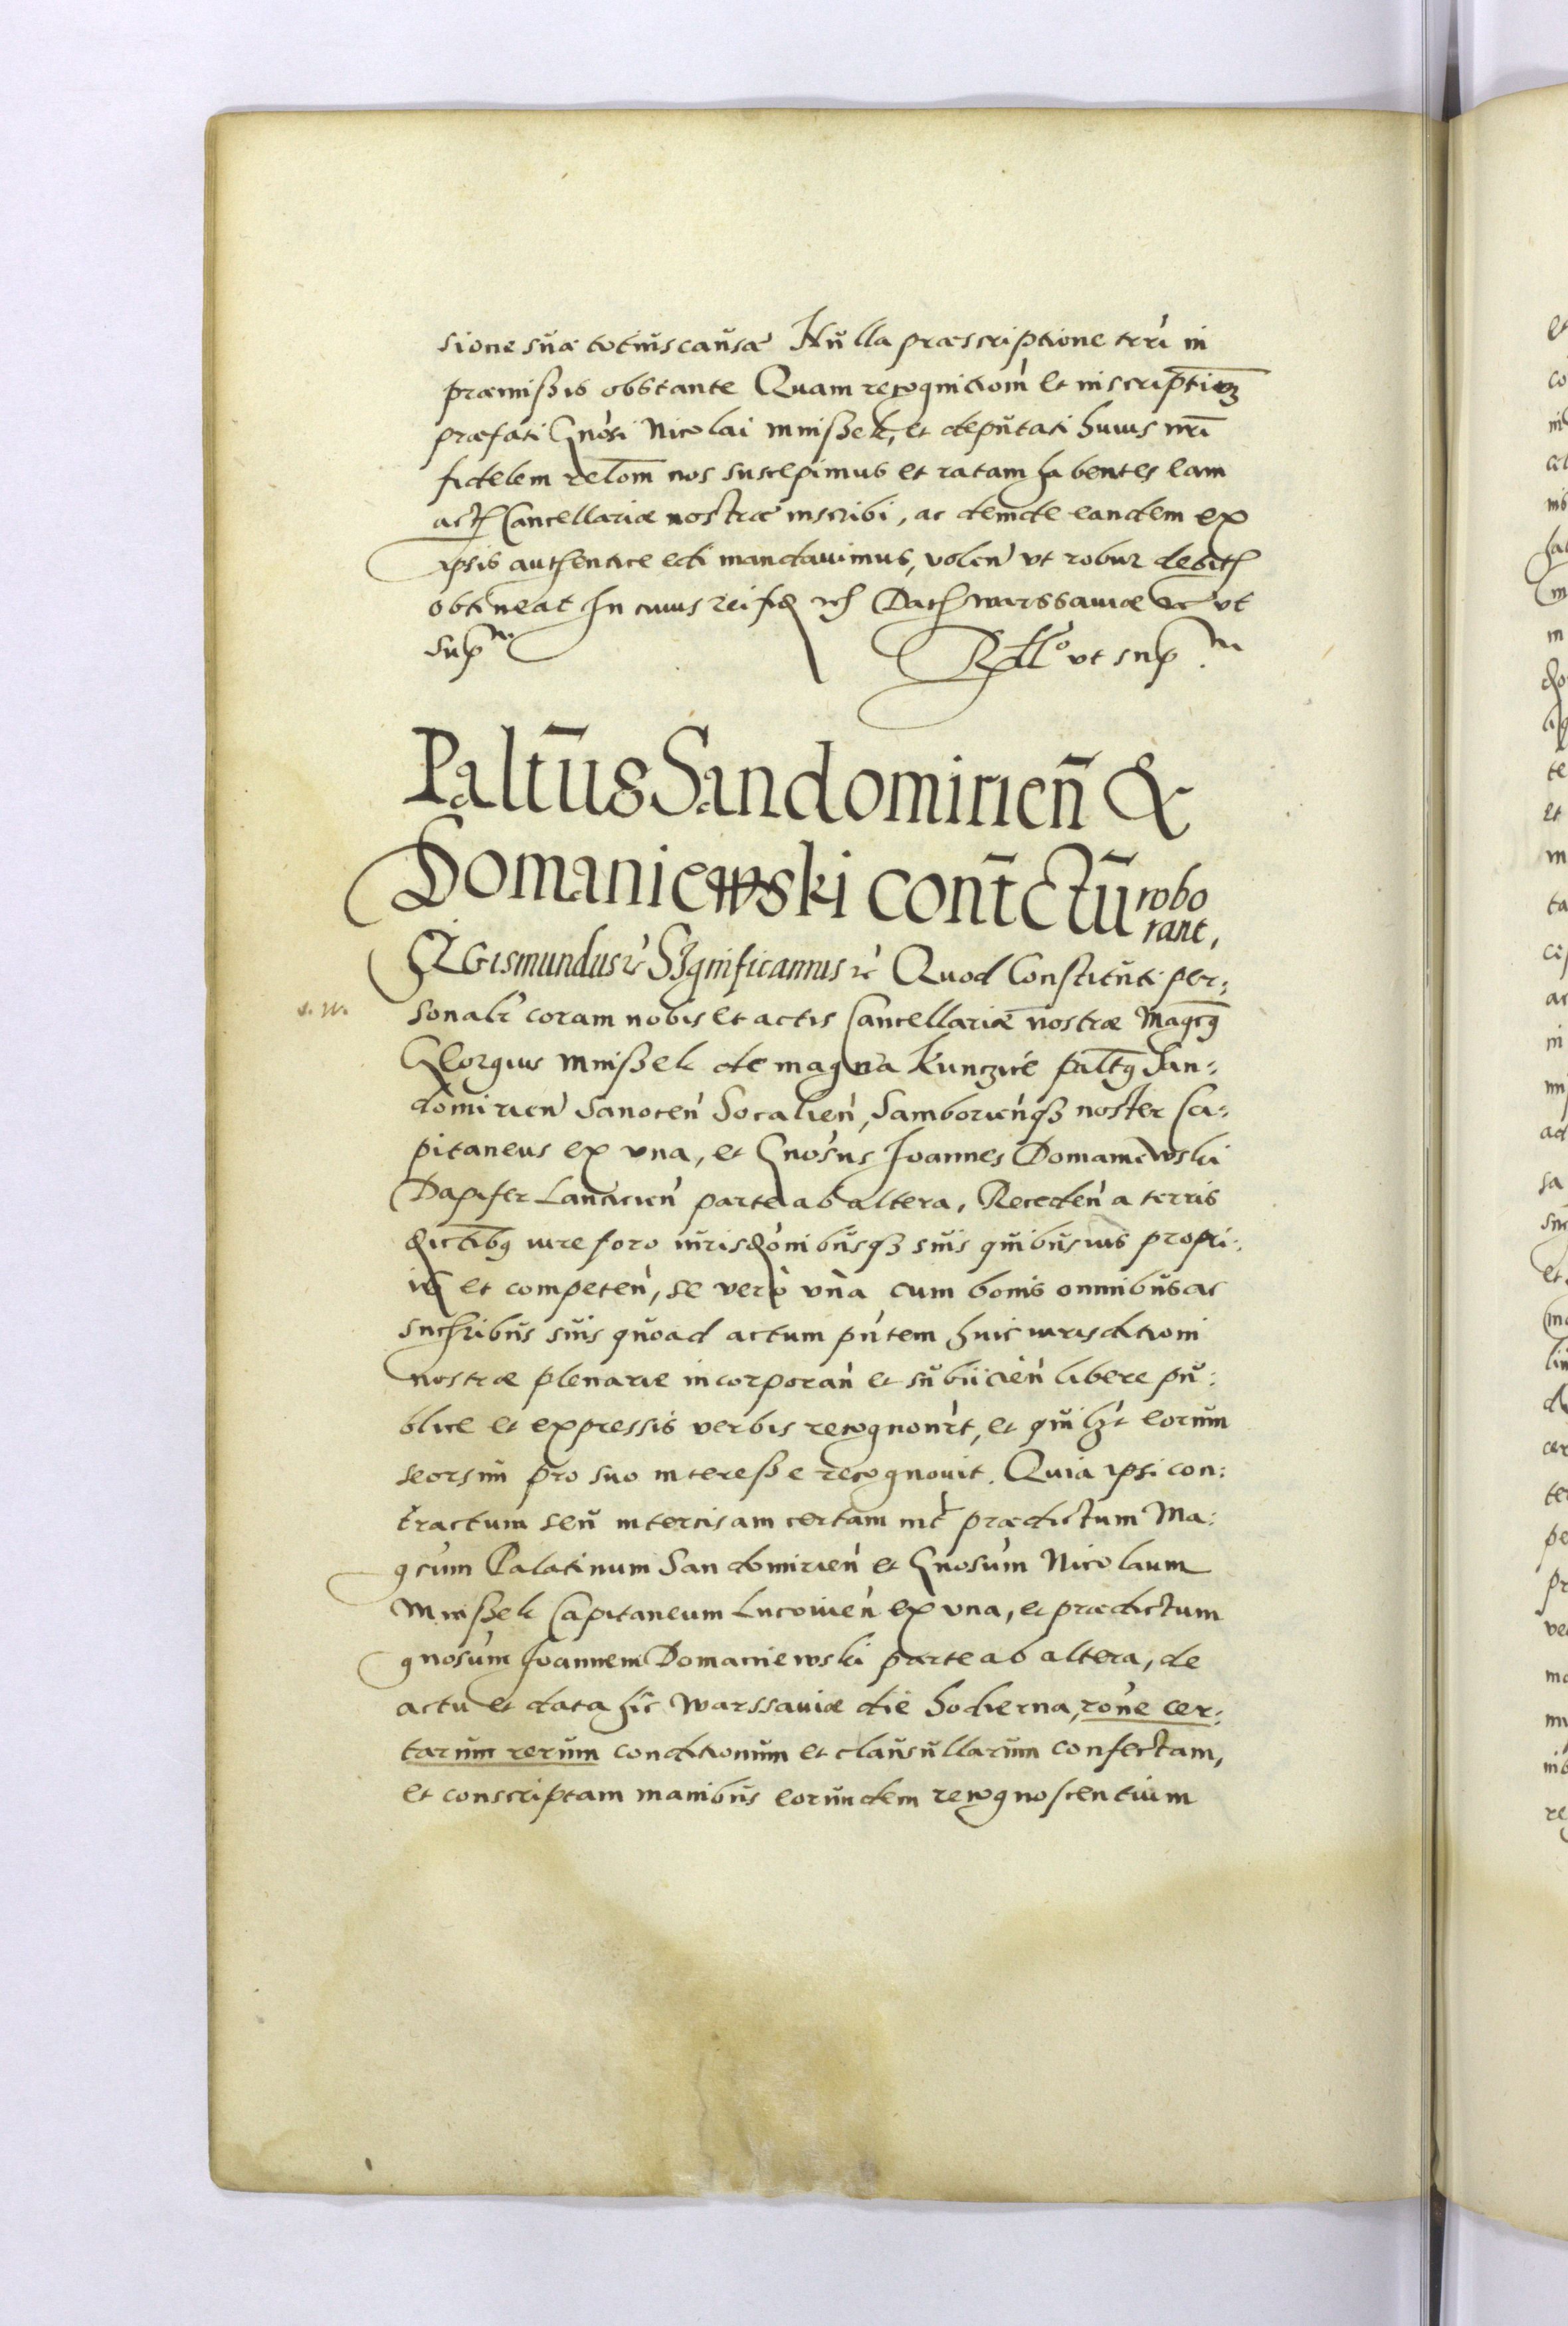 sione suæ totius causæ Nulla præscriptione terri in
præmissis obstante Quam recognitiom̄ et inscriptiom̄
præfati Gnosi Nicolai Mnißek, et deputati huius nrī
fidelem relom̄ nos suscepimus et ratam habentes eam
act Cancellariæ nostræ inscribi, ac deinde eandem ex
ipsis authentice edi mandauimus, volen̄ vt robur debit
obtineat In cuius rei fid Dat Warssauiæ vt
sup
vt sup
Palt̄us Sandomirien̄ &
Domaniewski cont̄ctū robo
rant,
Sigismundus rc̄ Significamus rc̄ Quod Constituti per:
sonalr̄ coram nobis et actis Cancellariæ nostræ Magcq
Georgius Mnißek de magna Kunczice paltq San:
domirien̄ Sanocen̄ Socalien̄, Samborien̄qz noster Ca:
pitaneus ex vna, et Gnosus Joannes Domaniewski
Dapifer Lancicien̄ parte ab altera, Receden̄ a terris
dictibq iure foro iurisdōnibusqz suis quibusuis propri:
is et competen̄, se vero vna cum bonis omnibus ac
sucribus suis quoad actum pn̄tem huic iurisditioni
nostræ plenarie incorporan̄ et subiicien̄ libere pu:
blice et expressis verbis recognour̄t, et quilzt eorum
seorsim pro suo interesse recognouit. Quia ipsi con:
tractum seu intercisam certam int̄ prædictum Ma:
gcum Palatinum Sandomirien̄ et Gnosum Nicolaum
Mnißek Capitaneum Lucouien̄ ex vna, et prædictum
gnosum Joannem Domaniewski parte ab altera, de
actu et data hic Warssauiæ die hodierna, rone cer:
tarum rerum conditionum et clausullarum confectam,
et conscriptam manibus eorundem recognoscentium